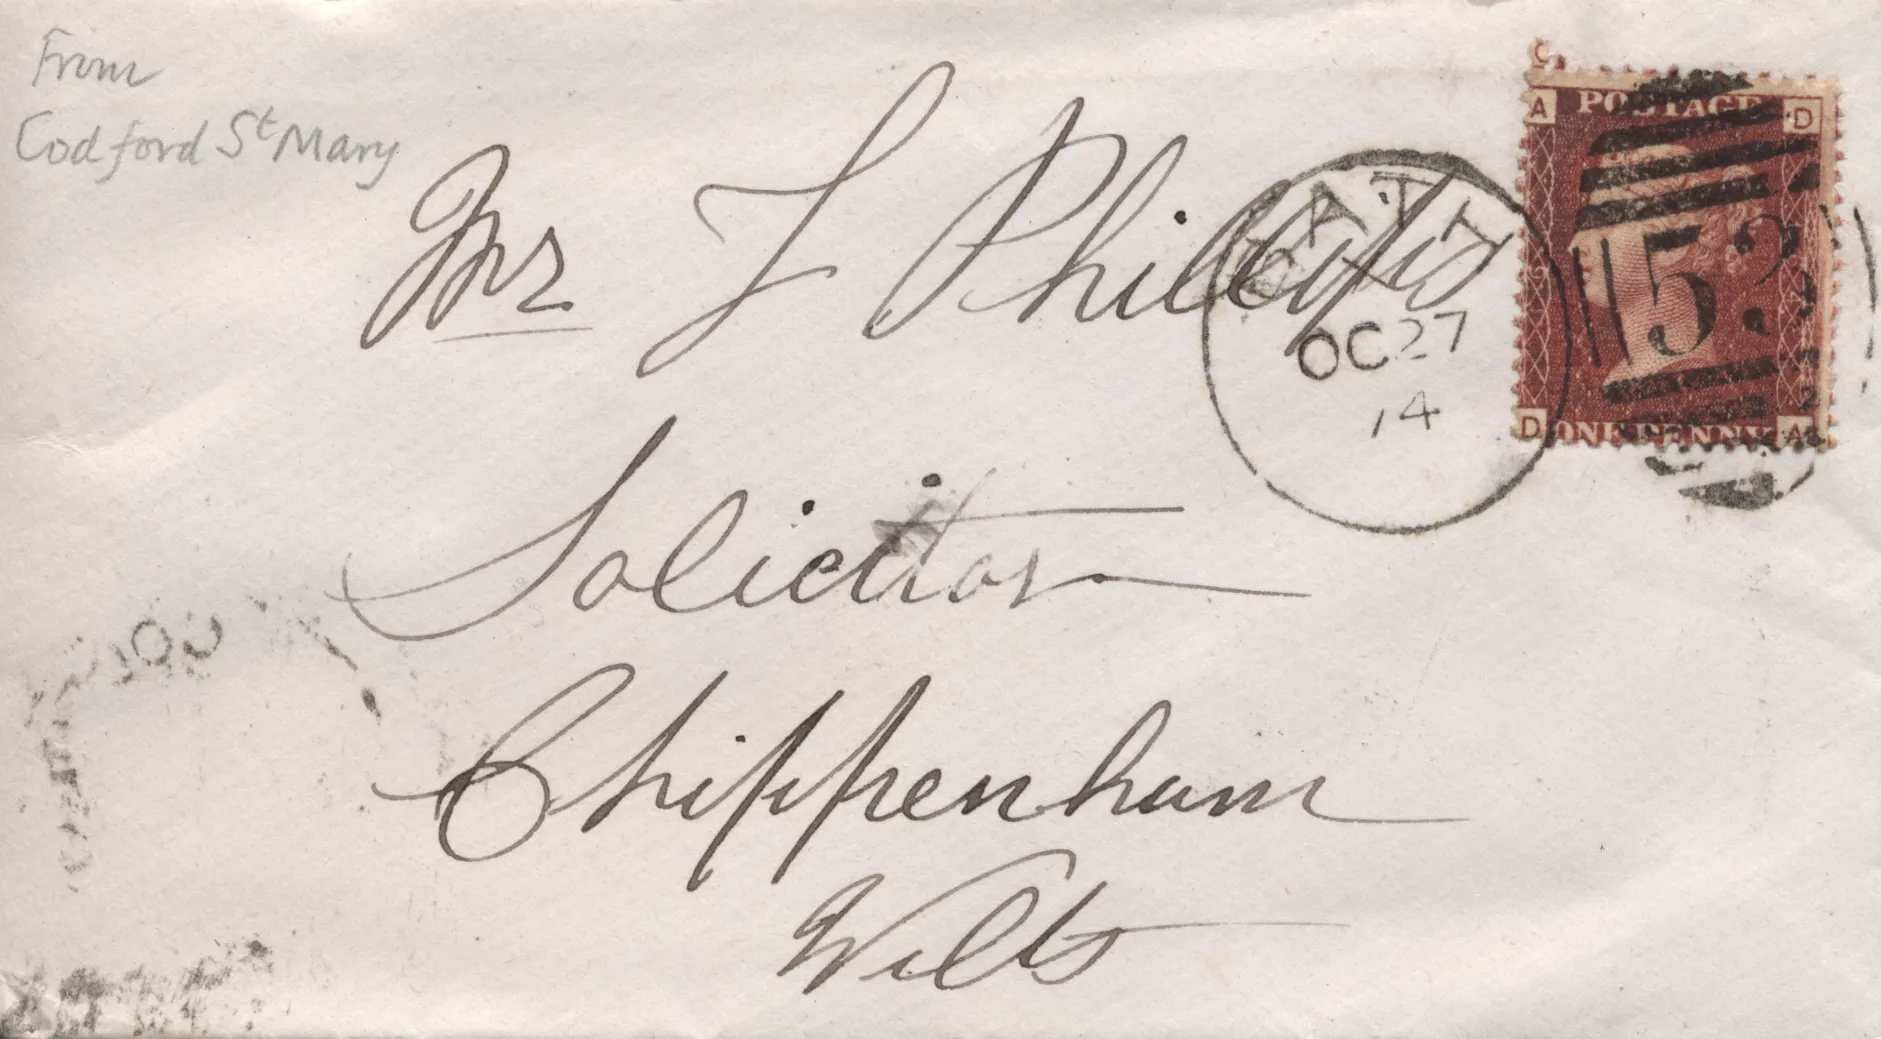 From
Codford St Mary
Mr J Phillips
Solicitor
Chippenham
Wilts
BATH
X
OC 27
74
53
C
A POSTAGE D
D ONE PENNY A